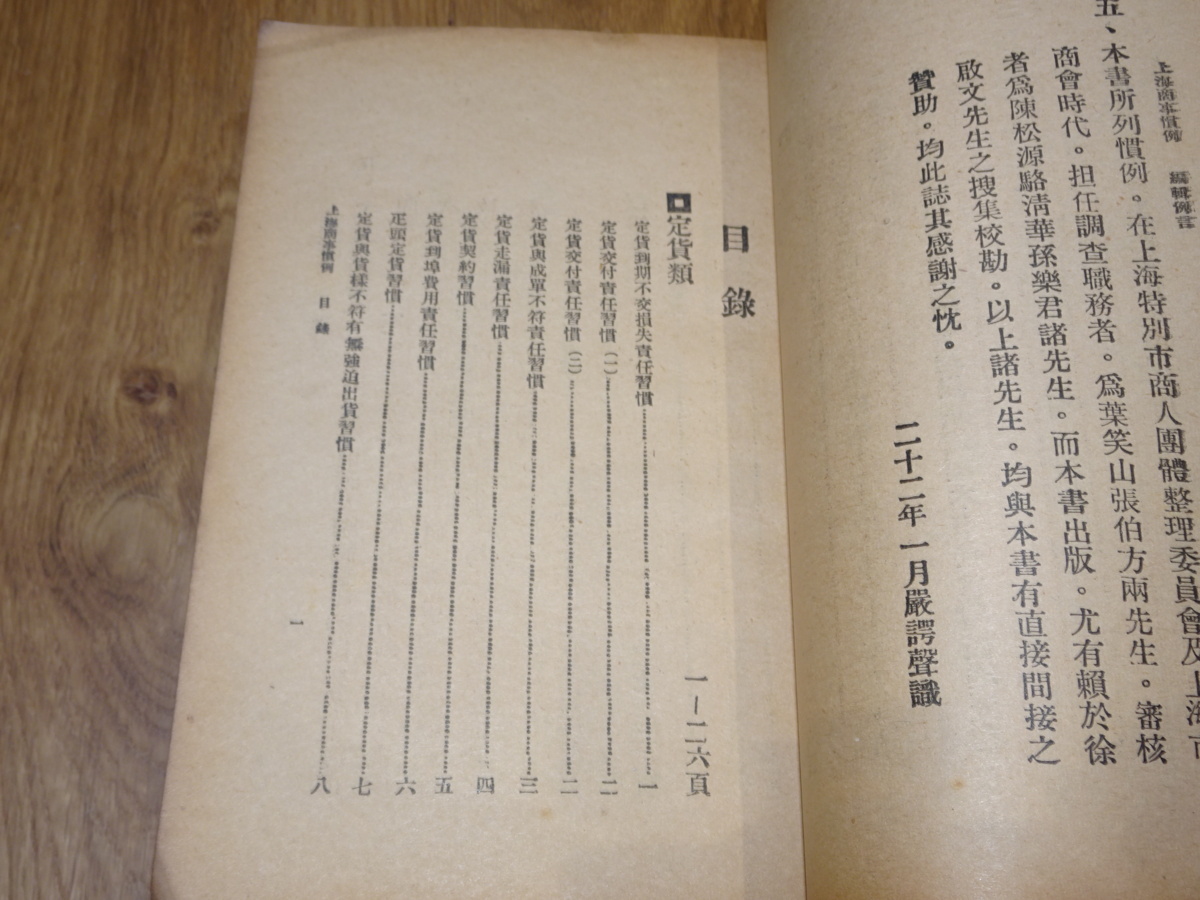 上海商事慣例　編輯例言
五、本書所列慣例。在上海特別市商人團體整理委員會及上海市
商會時代。担任調查職務者。爲葉笑山張伯方兩先生。審核
者爲陳松源駱淸華孫樂君諸先生。而本書出版。尤有賴於徐
啟文先生之搜集校勘。以上諸先生。均與本書有直接間接之
贊助。均此誌其感謝之忱。
二十二年一月嚴諤聲識
目錄
定貨類　一—二六頁
定貨到期不交損失責任習慣　一
定貨交付責任習慣（一）　二
定貨交付責任習慣（二）　二
定貨與成單不符責任習慣　三
定貨走漏責任習慣　四
定貨契約習慣　五
定貨到埠費用責任習慣　六
疋頭定貨習慣　七
定貨與貨樣不符有無強迫出貨習慣　八
上海商事慣例　目錄　一